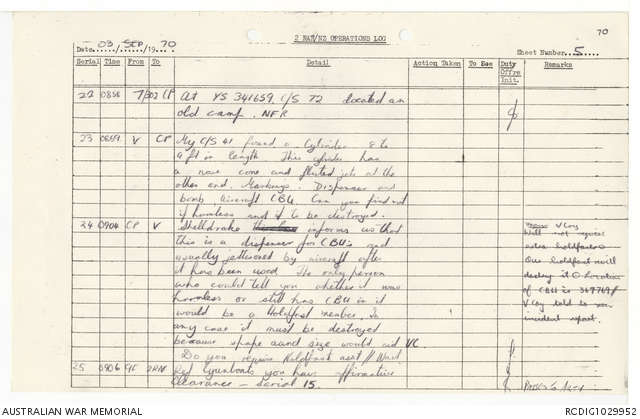 70
2 RAR/NZ OPERATIONS LOG
Date 03 / SEP / 19 70
Sheet Number 5
Serial Time From To Detail Action Taken To See Duty Offrs Init. Remarks
22 0858 CP At YS 341659 C/S 72 located an
old camp. NFR
23 V CP My C/S 41 found a cylinder 8 to
9 ft in length. This cylinder has
a nose cone and fluted jets at the
other end. Markings. Dispenser and
bomb aircraft CBU. Can you find out
if harmless and if to be destroyed.
24 0904 CP V Shelldrake informs us that
this is a dispenser for CBU's and
usually jettisoned by aircraft after
it has been used. The only person
who could tell you whether it was
harmless or still has CBU in it
would be a Holdfast member. In
any case it must be destroyed
because shape and size would aid VC.
Do you require Holdfast asst
25 0906 2RAR Red Gunboats you have affirmative
clearance - Serial 15.
V Coy
Will not require
extra holdfasts
Our holdfast will
destroy it location
of CBU is
V Coy told to
incident report.
AUSTRALIAN WAR MEMORIAL
RCDIG1029952